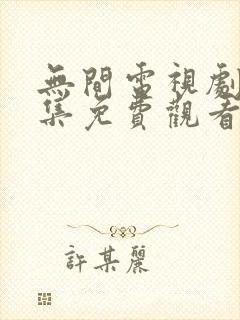 無間電視劇
集免費觀看
許某麗